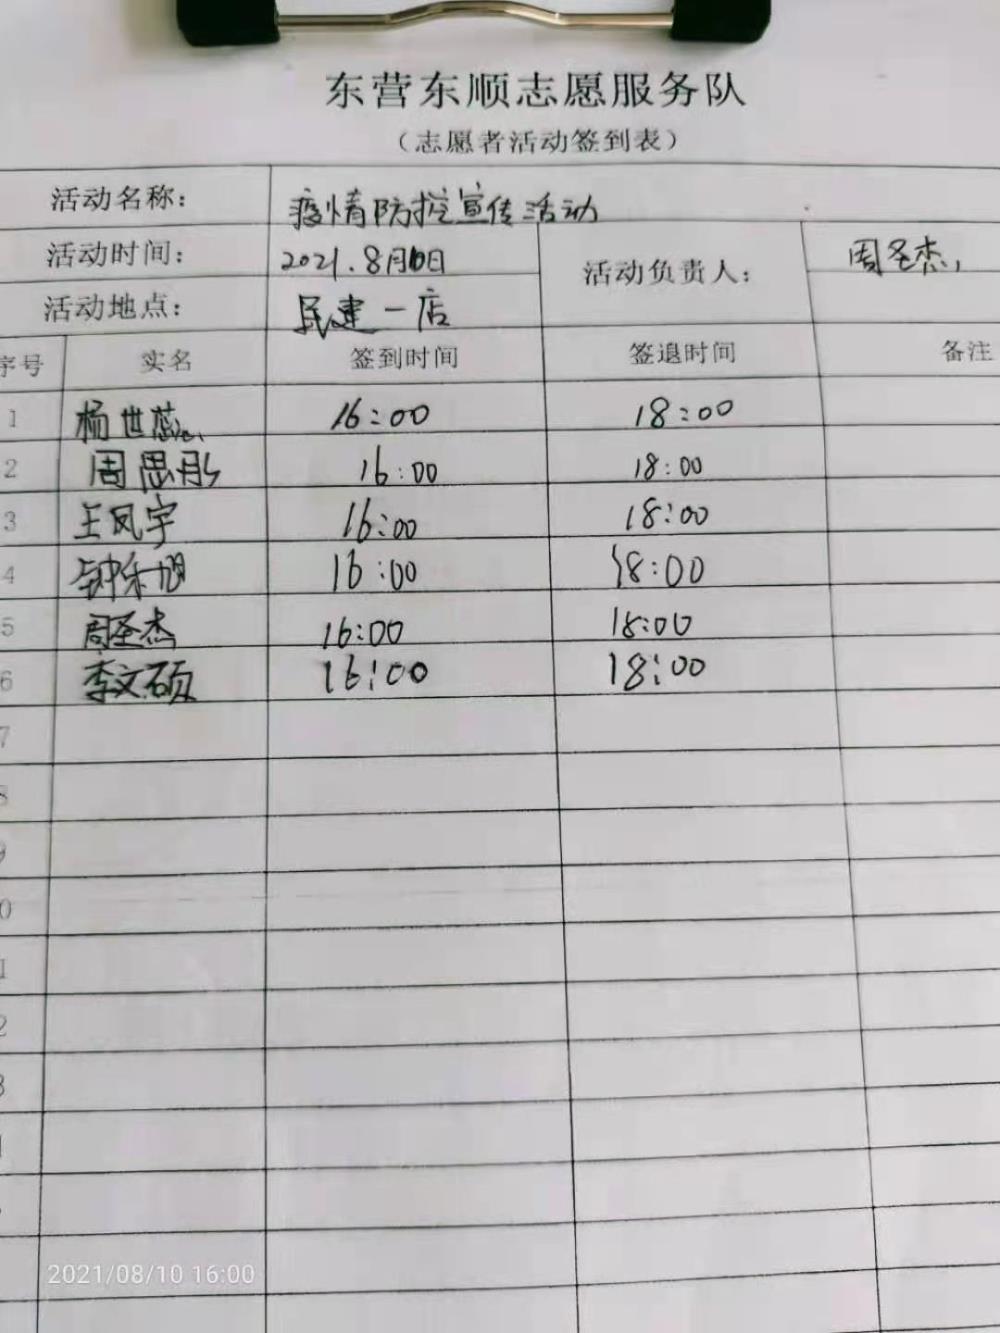 东营东顺志愿服务队
（志愿者活动签到表）
活动名称： 疫情防控宣传活动
活动时间： 2021.8月10日 活动负责人： 周圣杰
活动地点： 民建一店
序号 实名 签到时间 签退时间 备注
1 杨世蕊 16:00 18:00
2 周思彤 16:00 18:00
3 王凤宇 16:00 18:00
4 钟乐旭 16:00 18:00
5 周圣杰 16:00 18:00
6 李文硕 16:00 18:00
7
8
9
0
1
2
3
2021/08/10 16:00